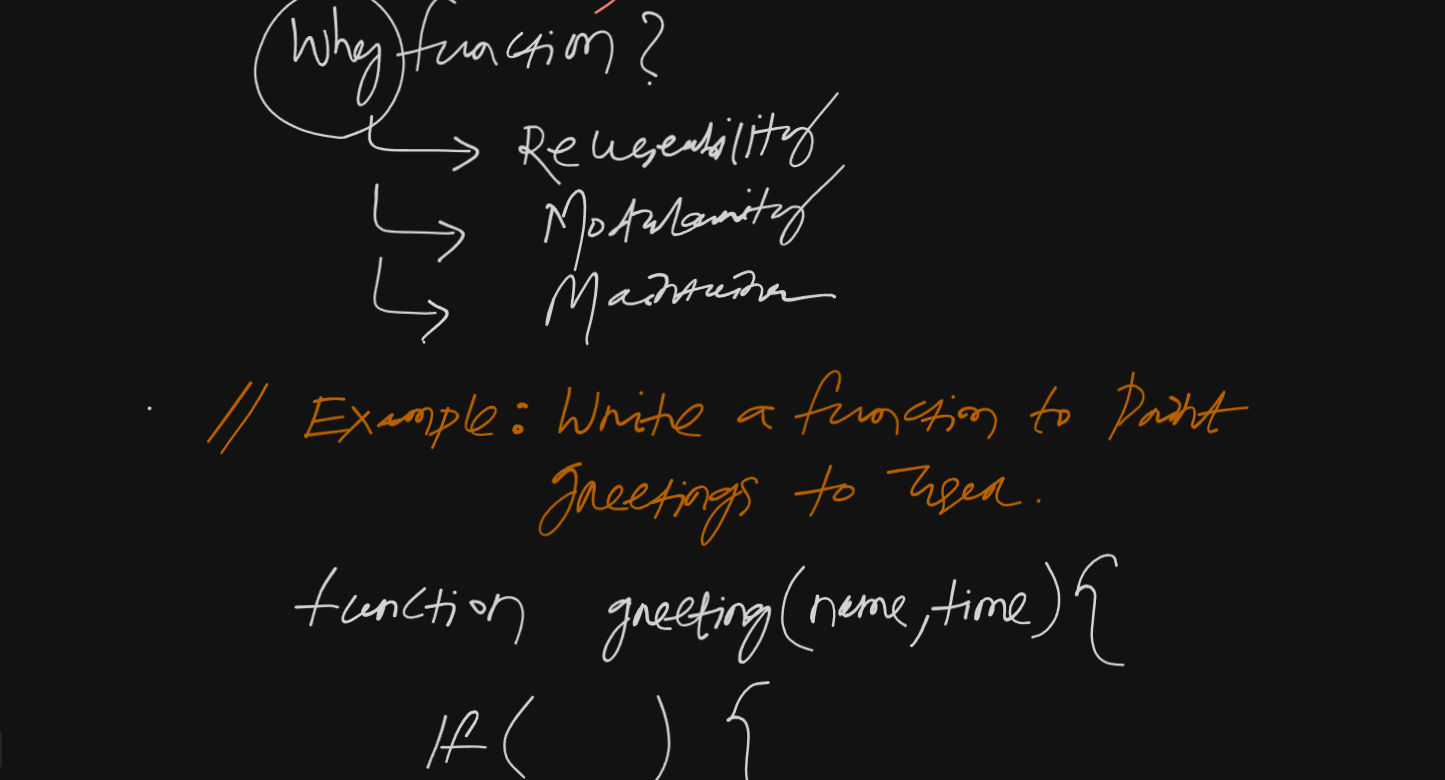 Why function?
Reuseability
Modularity
// Example: Write a function to Print
greetings to user.
function greeting(name, time) {
If ( ) {